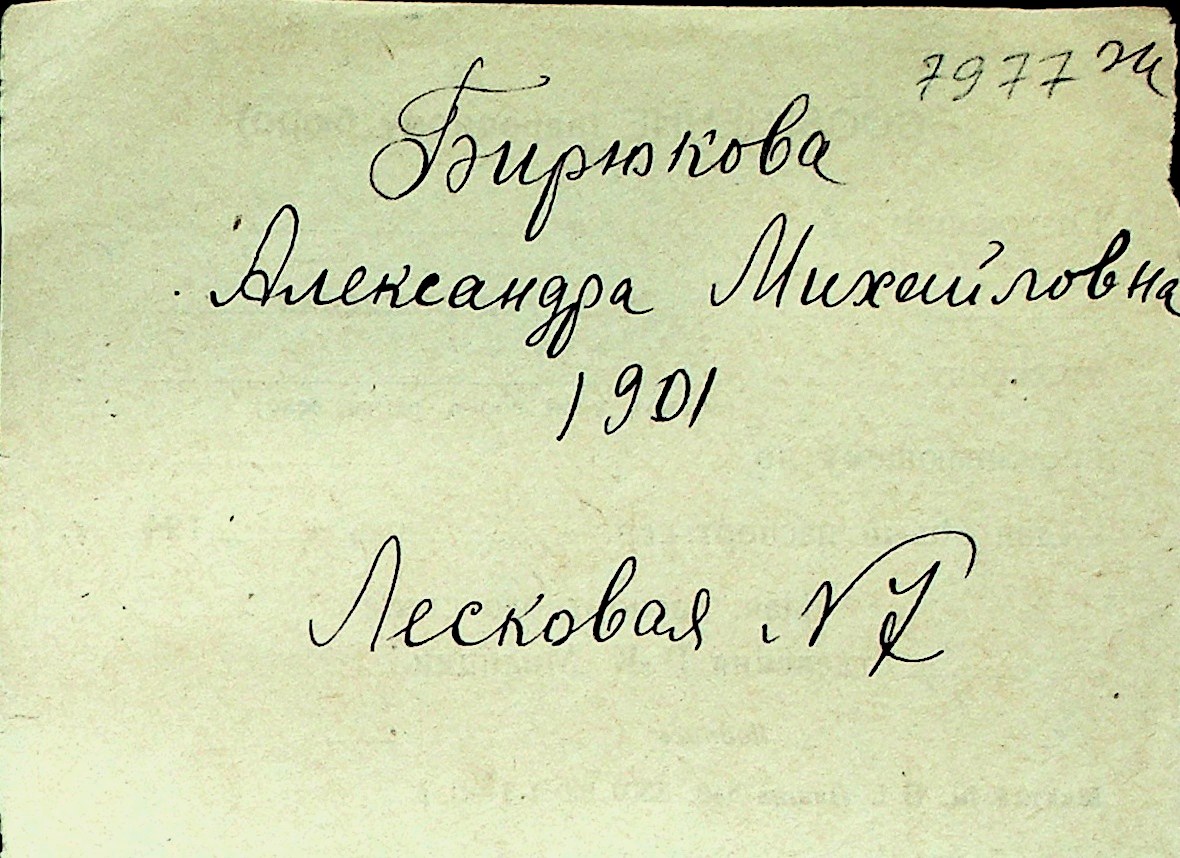 7977 ж
Бирюкова
Александра Михайловна
1901
Лесковая №